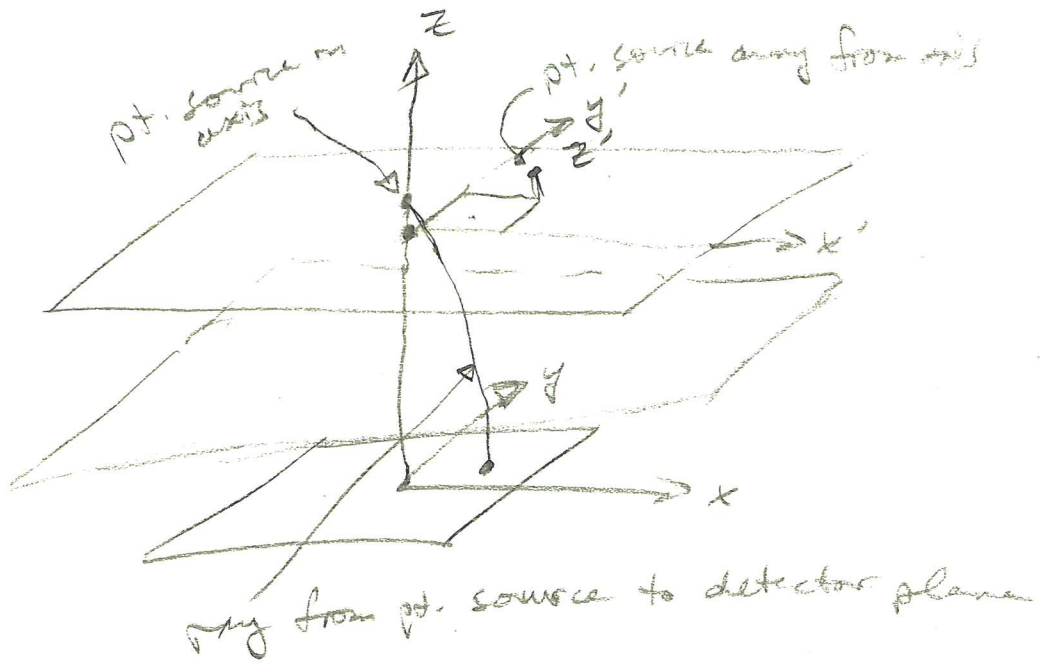 z
pt. source on
axis
pt. source away from axis
y'
z'
x'
y
x
ray from pt. source to detector plane